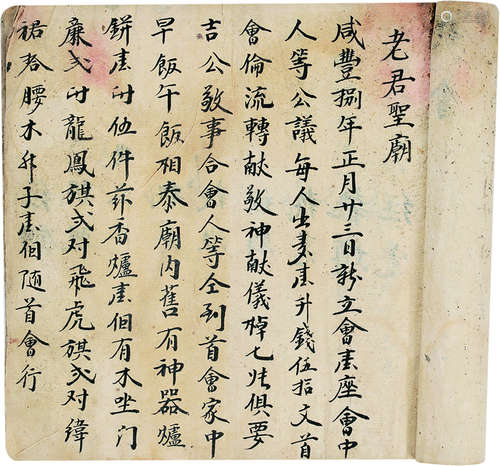 老君聖廟
咸豐捌年正月廿三日新立會壹座會中
人等公議每人出麦壹升錢伍拾文首
會倫流轉献敬神献儀悼七片俱要
吉公敬事合會人等仝到首會家中
早飯午飯相泰廟內舊有神器爐
餅壹付伍件茶香爐壹個有木坐门
簾弍付龍鳳旗弍对飛虎旗弍对緯
裙叁腰木升子壹個随首會行